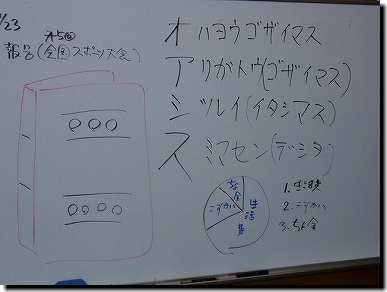 /23
第5回
報告(全国スポーツ大会)
オハヨウゴザイマス
アリガトウ(ゴザイマス)
シツレイ(イタシマス)
スミマセン(デシタ)
○○○
○○○○
ちょ金
こずかい
生活費
1. 生活費
2. こずかい
3. ちょ金